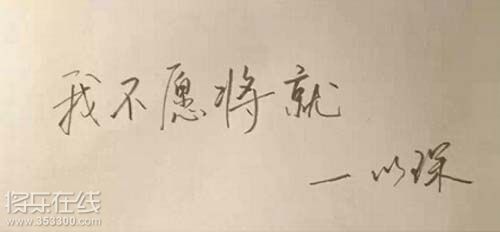 我不愿将就
一以琛
将乐在线
www.353300.com